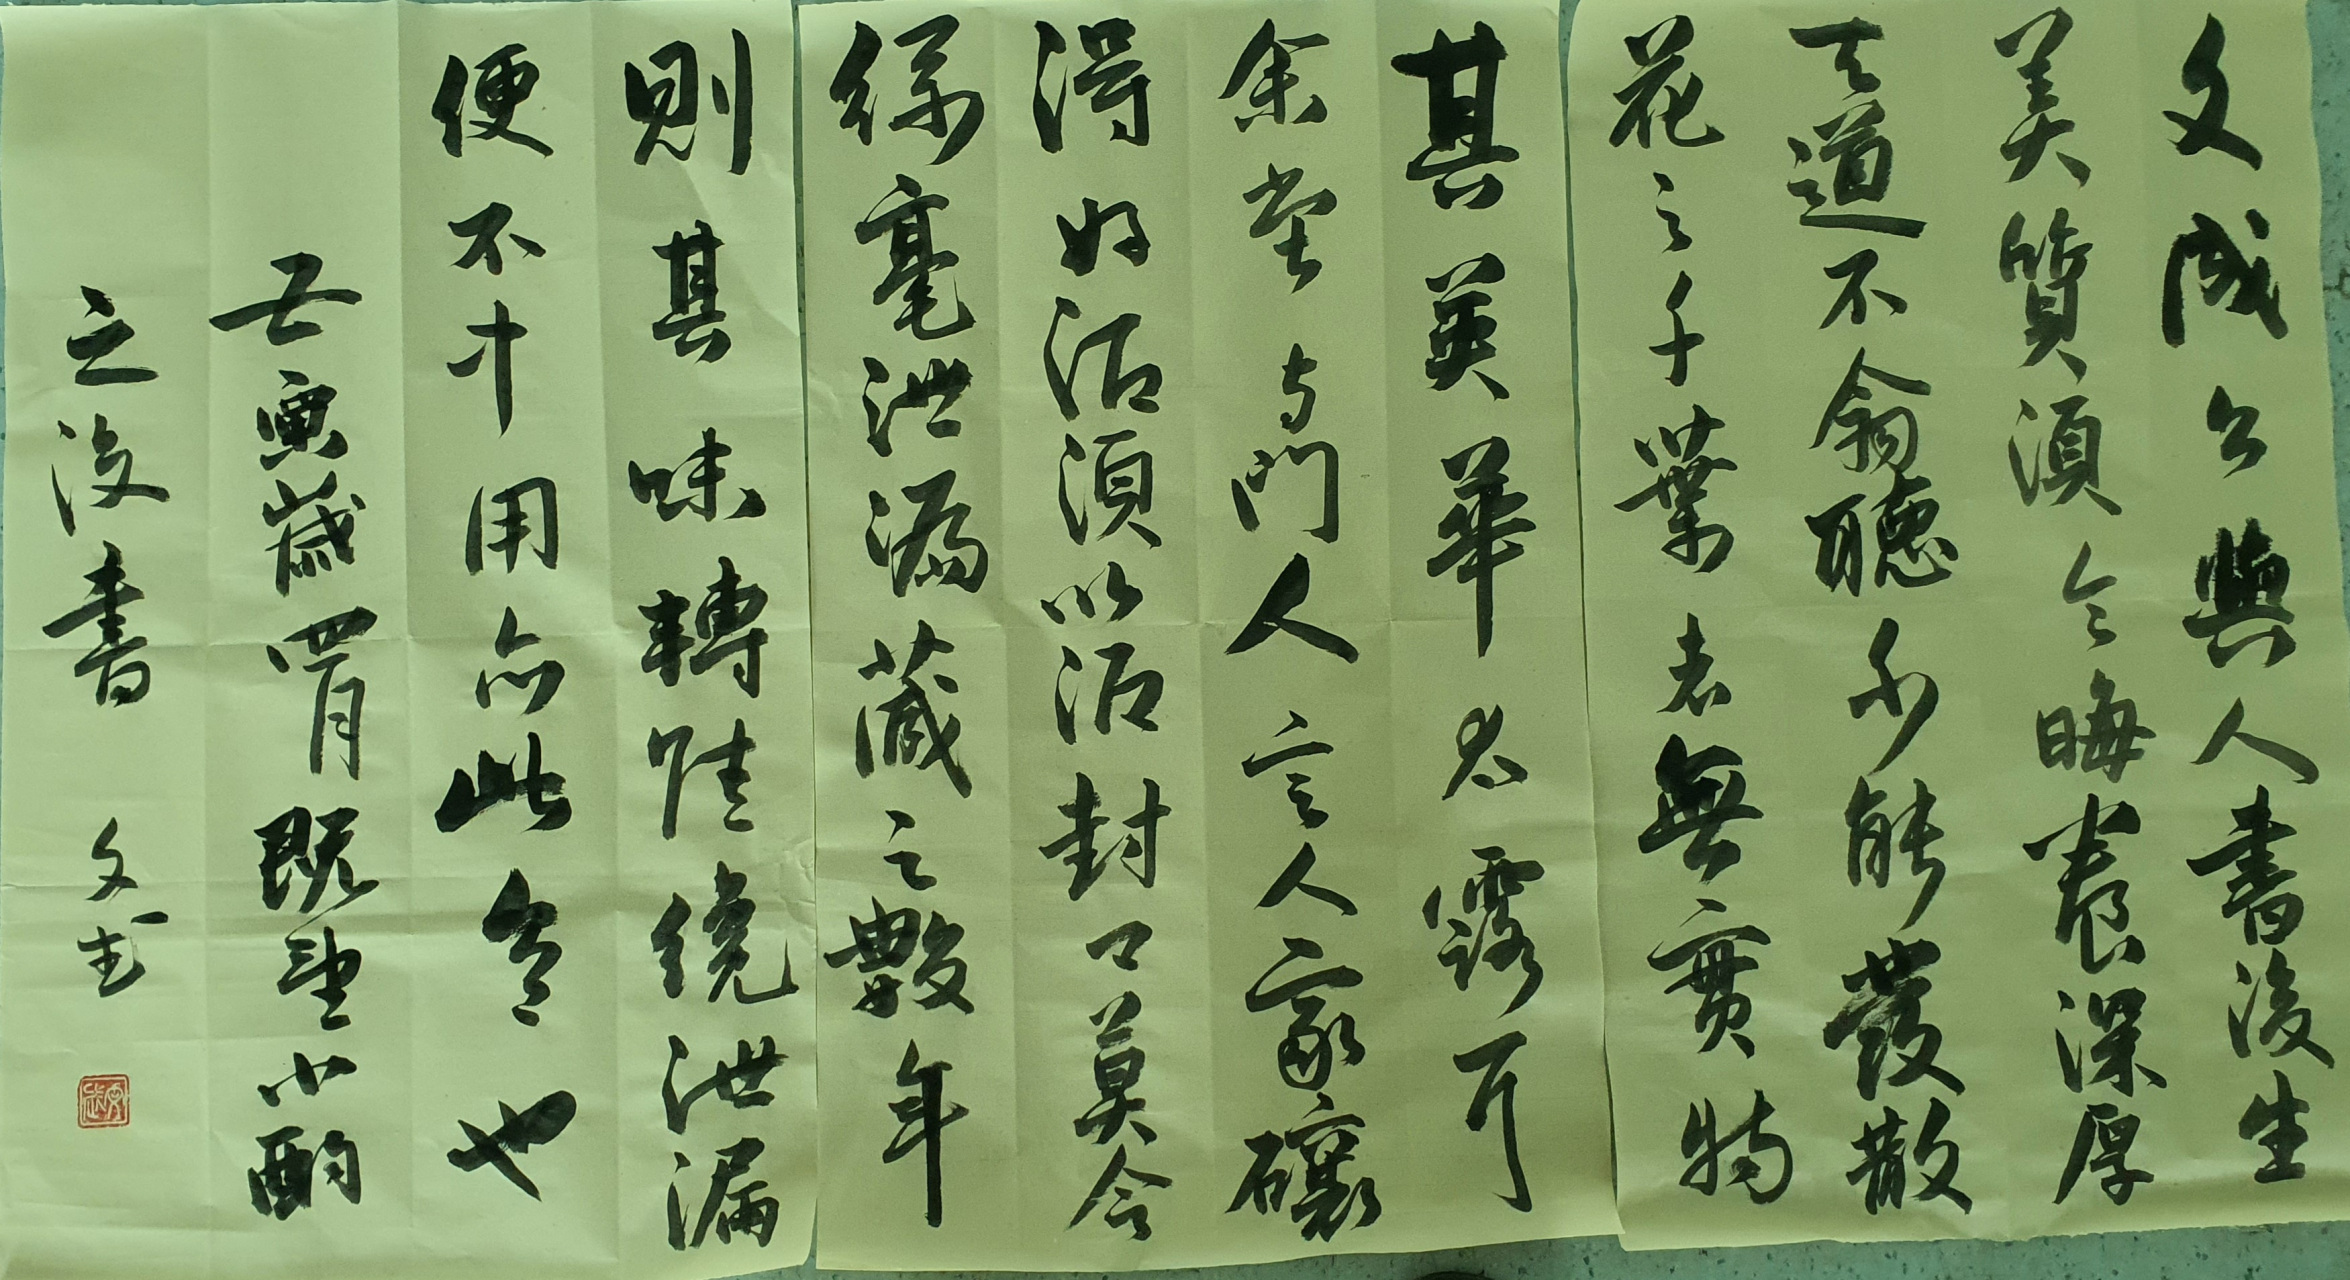 文成公與人書後生
美質須令晦養深厚
天道不翕聽不能發散
花之千葉者無實物
其英華太露耳
余嘗与門人言人家釀
得好酒須以泥封口莫令
絲毫泄漏藏之數年
則其味轉佳纔泄漏
便不中用亦此意也
壬寅歲四月既望小酌
之後書 文武